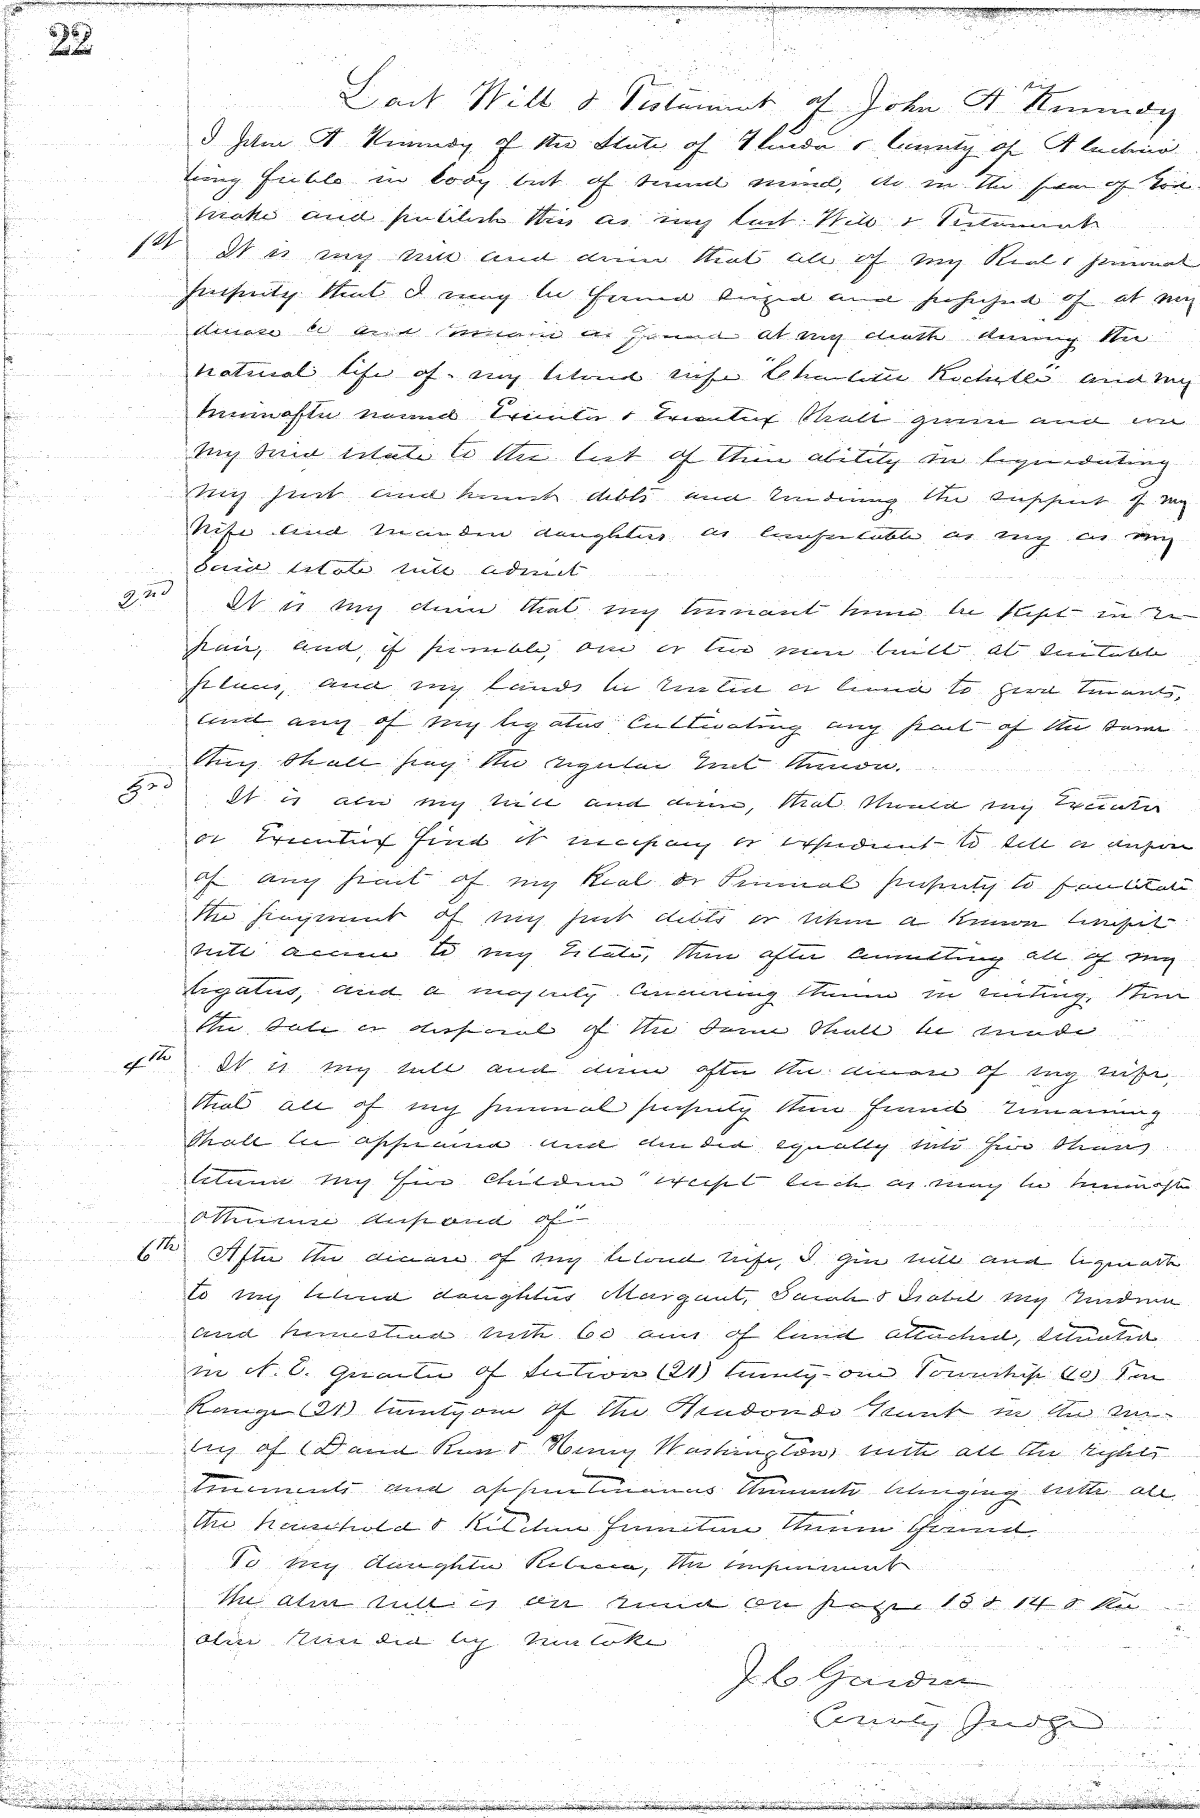 22
Last Will & Testament of John A Kennedy
I John A Kennedy of the State of Florida & County of Alachua
being feeble in body but of sound mind, do in the fear of God
make and publish this as my last Will & Testament
1st It is my will and desire that all of my Real & personal
property that I may be found seized and possessed of at my
decease be and remain as found at my death during the
natural life of my beloved wife "Charlotte Rochelle" and my
hereinafter named Executor & Executrix Shall govern and use
my said estate to the best of their ability in liquidating
my just and honest debts and rendering the support of my
wife and maiden daughters as comfortable as my as my
Said estate will admit
2nd It is my desire that my tennant house be Kept in re-
pair, and, if possible, one or two more built at suitable
places, and my lands be rented or leased to good tenants,
and any of my legatees Cultivating any part of the same
they shall pay the regular rent thereon.
3rd It is also my will and desire, that should my Executor
or Executrix find it necessary or expedient to sell or dispose
of any part of my Real or Personal property to facilitate
the payment of my just debts or when a known benefit
will accrue to my Estate, then after consulting all of my
legatees, and a majority concurring therein in writing, then
the sale or disposal of the same shall be made
4th It is my will and desire after the decease of my wife,
that all of my personal property then found remaining
Shall be appraised and divided equally into five Shares
between my five children "except such as may be hereinafter
otherwise disposed of"-
6th After the decease of my beloved wife, I give will and bequeath
to my beloved daughters Margaret, Sarah & Isabel my residence
and homestead with 60 acres of land attached, situated
in N. E. quarter of Section (21) twenty-one Township (10) Ten
Range (21) twenty one of the Arredondo Grant in the
of (David Rees & Henry Washington) with all the rights
tenements and appurtenances thereunto belonging with all
the household & Kitchen furniture therein found.
To my daughter Rebecca, the improvement
the above will is on record on page 13 & 14 & the
above recorded by mistake
J. C. Gardner
County Judge